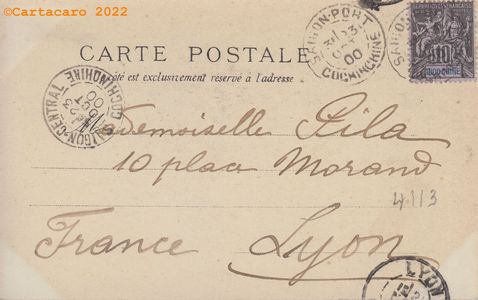 ©Cartacaro 2022
CARTE POSTALE
Ce côté est exclusivement réservé à l'adresse
SAIGON-PORT
00
COCHINCHINE
SAIGON
INDO-CHINE
10
SAIGON-CENTRAL
00
COCHINCHINE
Mademoiselle Pila
10 place Morand
4113
France Lyon
LYON